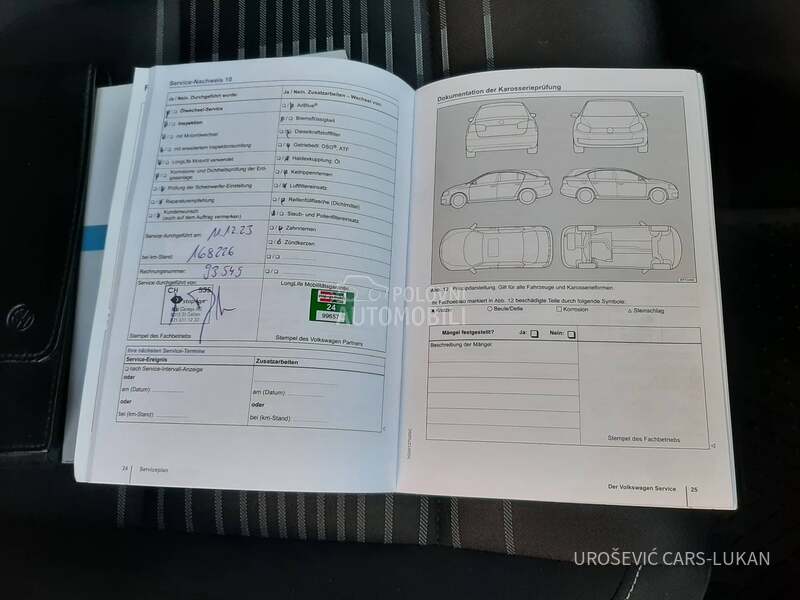 Service-Nachweis 10
Ja / Nein. Durchgeführt wurde:
Ölwechsel-Service
Inspektion
mit Motorölwechsel
mit erweitertem Inspektionsumfang
LongLife Motoröl verwendet
Korrosions- und Dichtheitsprüfung der Erd-
gasanlage
Prüfung der Scheinwerfer-Einstellung
Reparaturempfehlung
Kundenwunsch
(auch auf dem Auftrag vermerken)
Service durchgeführt am: 11.12.23
bei km-Stand: 168226
Rechnungsnummer: 93545
Service durchgeführt von:
CH 535
Stempel des Fachbetriebs
Ja / Nein. Zusatzarbeiten – Wechsel von:
AdBlue®
Bremsflüssigkeit
Dieselkraftstofffilter
Getriebeöl: DSG®, ATF
Haldexkupplung: Öl
Keilrippenriemen
Luftfiltereinsatz
Reifenfüllflasche (Dichtmittel)
Staub- und Pollenfiltereinsatz
Zahnriemen
Zündkerzen
LongLife Mobilitätsgarantie
24
99657
Stempel des Volkswagen Partners
Ihre nächsten Service-Termine
Service-Ereignis
nach Service-Intervall-Anzeige
oder
am (Datum):
oder
bei (km-Stand):
Zusatzarbeiten
am (Datum):
oder
bei (km-Stand):
24 Serviceplan
Dokumentation der Karosserieprüfung
Abb. 12 Prinzipdarstellung: Gilt für alle Fahrzeuge und Karosserieformen
Der Fachbetrieb markiert in Abb. 12 beschädigte Teile durch folgende Symbole:
Kratzer Beule/Delle Korrosion Steinschlag
Mängel festgestellt? Ja: Nein:
Beschreibung der Mängel:
Stempel des Fachbetriebs
Der Volkswagen Service 25
POLOVNI
AUTOMOBILI
UROŠEVIĆ CARS-LUKAN